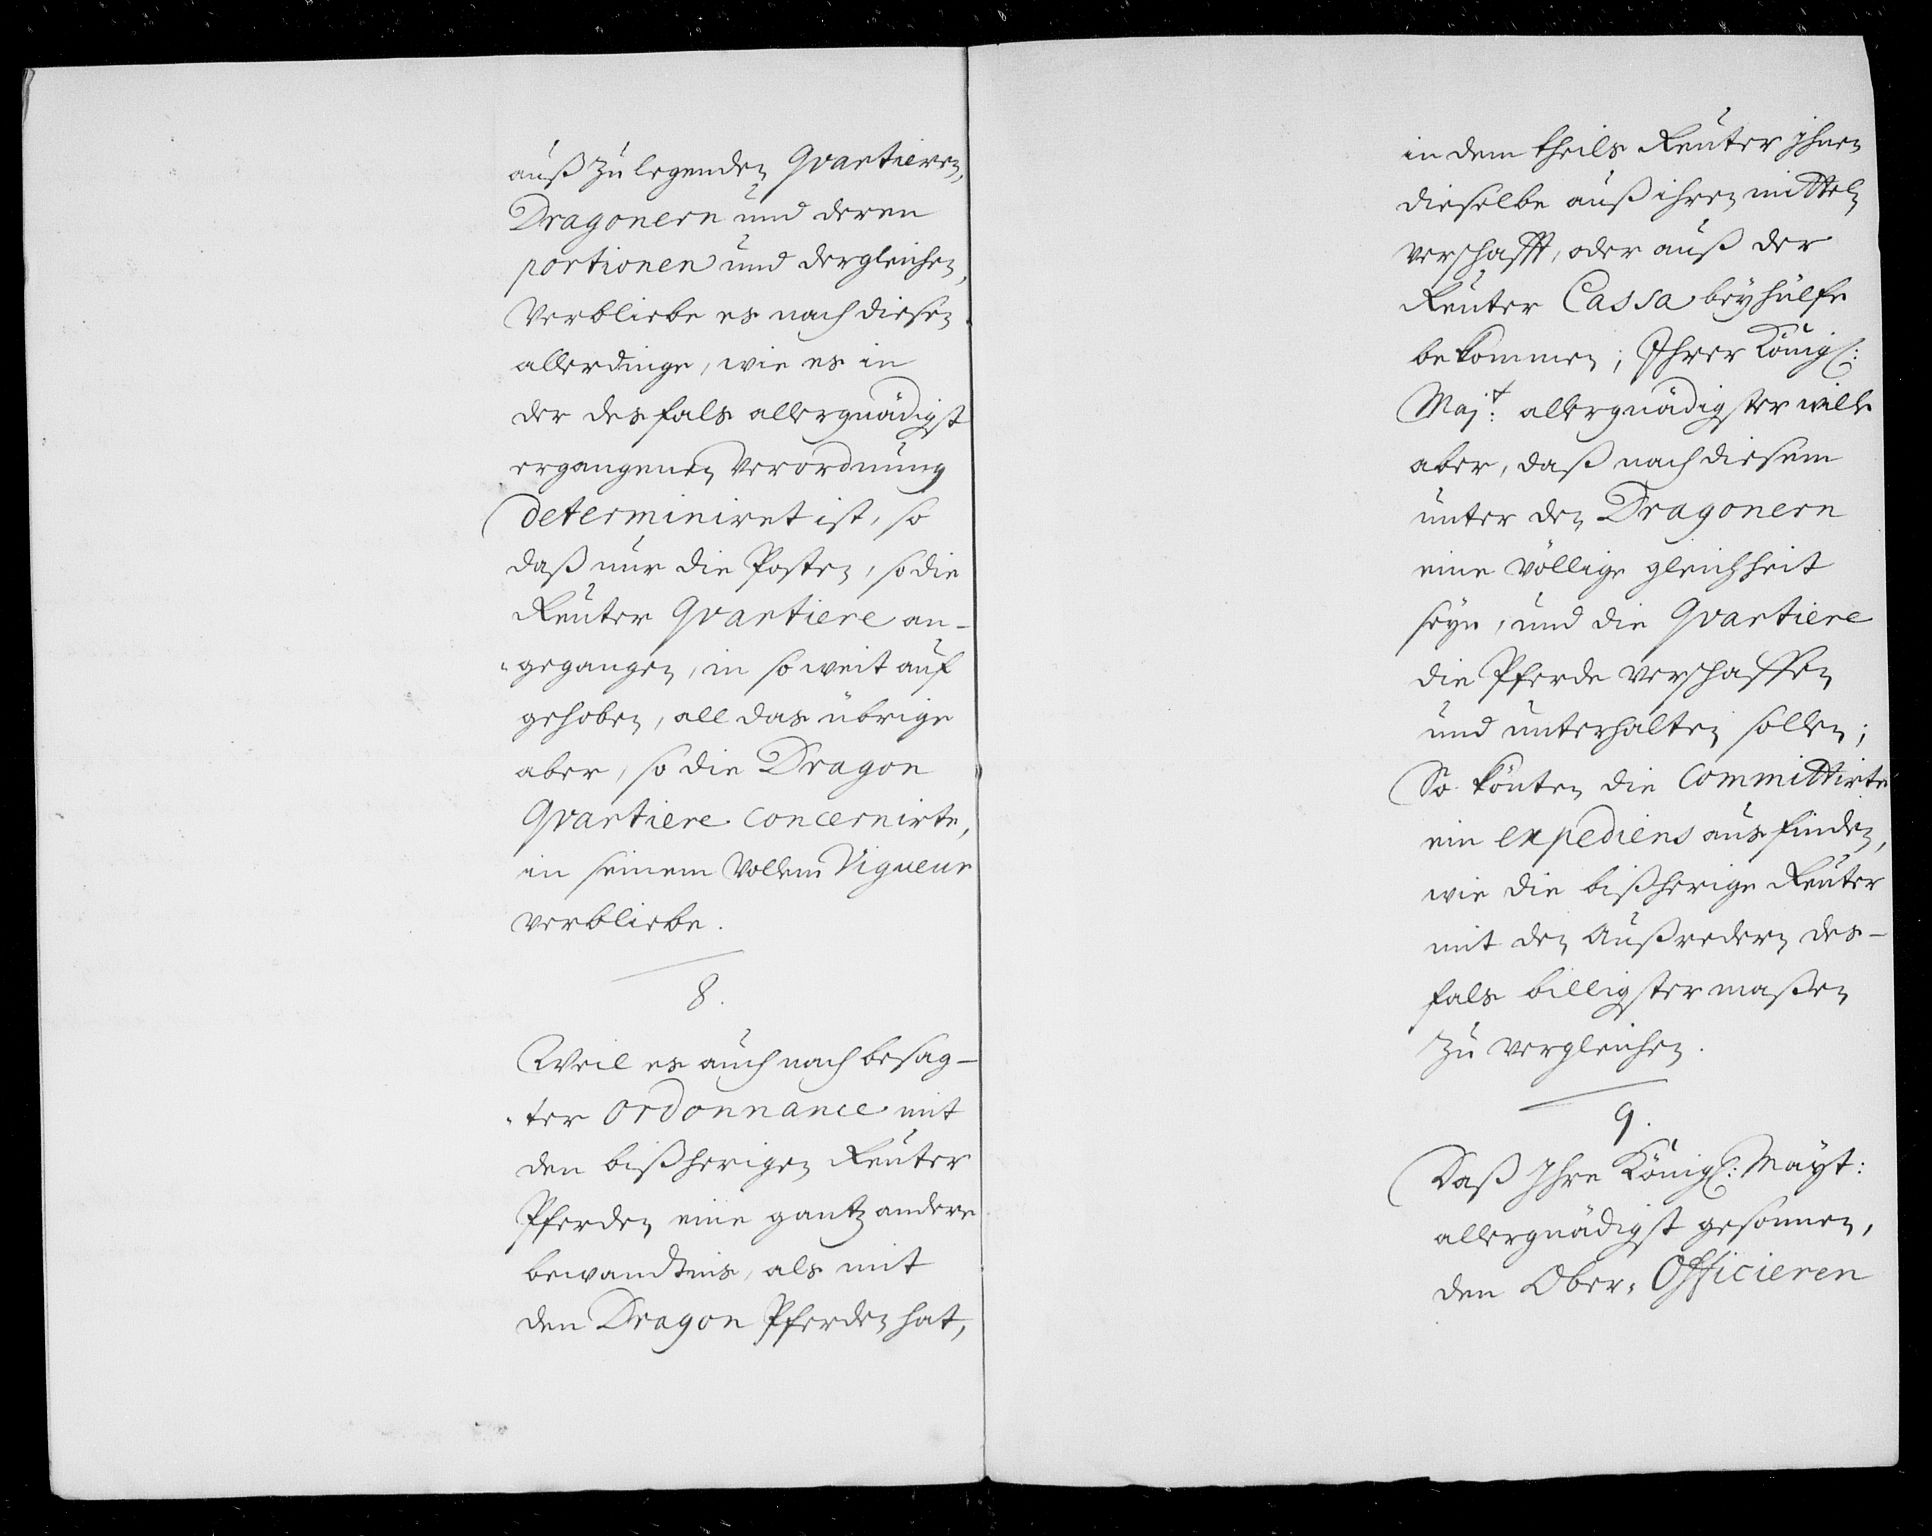 auß zu legenden Qvartieren,
Dragonern und deren
portionen und dergleichen,
Verbliebe es nach diesen
allerdinge, wie es in
der desfals allergnädigst
ergangenen Verordnung
determiniret ist, so
daß nur die Posten, so die
Reuter Qvartiere an-
gegangen, in so weit auf
gehoben, all das übrige
aber, so die Dragon
Qvartiere concernirte,
in seinem Vollem Vigueur
verbliebe.
8.
Weil es auch nach besag-
ter ordonnance mit
den bißherigen Reuter
Pferden eine gantz andere
bewandtnis, als mit
den Dragon Pferden hat,
in dem theils Reuter ihnen
dieselbe auß ihren mitteln
verschafft, oder auß der
Reuter Cassa beyhülfe
bekommen; Ihrer Königl:
Maj:t allergnädigster wille
aber, daß nach diesem
unter den Dragonern
eine völlige gleichheit
seyn, und die Qvartiere
die Pferde verschaffen
und unterhalten sollen;
So könten die Committirte
ein expediens ausfinden,
wie die bißherige Reuter
mit den Außredern des-
fals billigster maßen
zu vergleichen.
9.
Daß Ihre Königl: Mayt:
allergnädigst gesonnen,
den Ober-Officieren